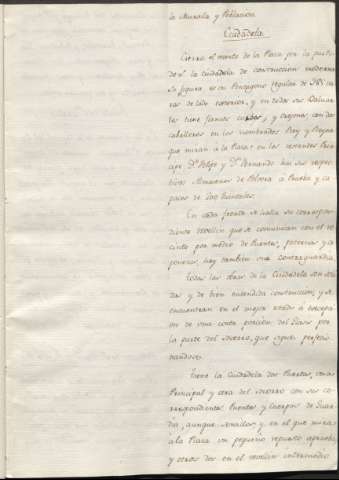 la Muralla y Poblacion
Ciudadela
Cierra el frente de la Plaza por la parte
del la Ciudadela de construccion moderna
Su figura es un Pentagono regular de
varas de lado exterior, y en todos sus Baluar-
tes tiene flancos y orejones, con dos
caballeros en los nombrados Rey y Reyna
que miran a la Plaza: en los restantes Prin-
cipe Dn. Felipe y Dn. Fernando hai sus respec-
tivos Almacenes de Polvora à Prueba y ca-
paces de 200 Quintales.
En cada frente se halla su correspon-
diente revellin que se comunican con el re-
cinto por medio de Puentes, poternas y
, hay tambien una contraguardia
Todas las obras de la Ciudadela son
das y de bien entendida construccion, y se
encuentran en el mejor estado à excep
on de una corta porcion del Foso por
la parte del Socorro, que sigue perfeccio
nandose.
Tiene la Ciudadela dos Puertas, una
Principal y otra del Socorro con sus co-
rrespondientes Puentes y Cuerpos de Guar
dia, aunque sencillos, y en el que mira
a la Plaza un pequeño repuesto
y otros dos en el revellin intermedio